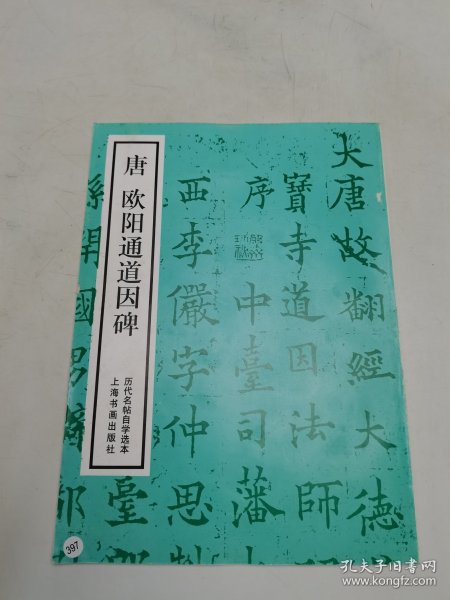 唐 欧阳通道因碑
历代名帖自学选本
上海书画出版社
大唐故翻經大德
寶寺道因法師
序 中臺司藩
西李儼字仲思
開國男
臺
397
孔夫子旧书网
www.kongfz.com